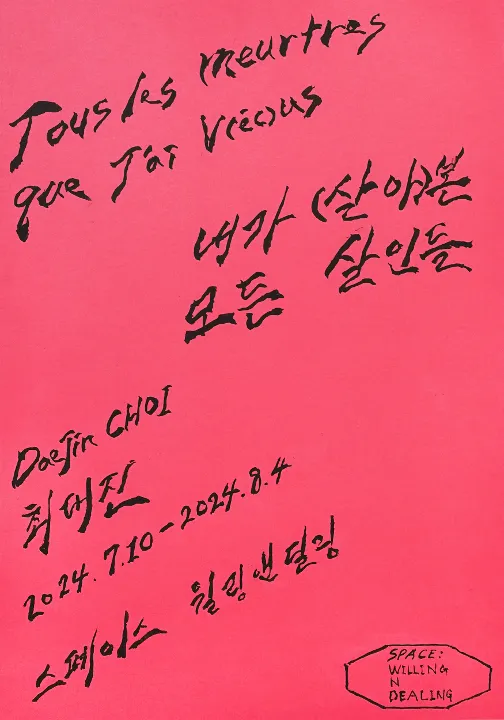 Tous les meurtres
que J'ai V(éc)us
내가 (살아)본
모든 살인들
DaeJin CHOI
최대진
2024.7.10-2024.8.4
스페이스 윌링앤딜링
SPACE:
WILLING
N
DEALING